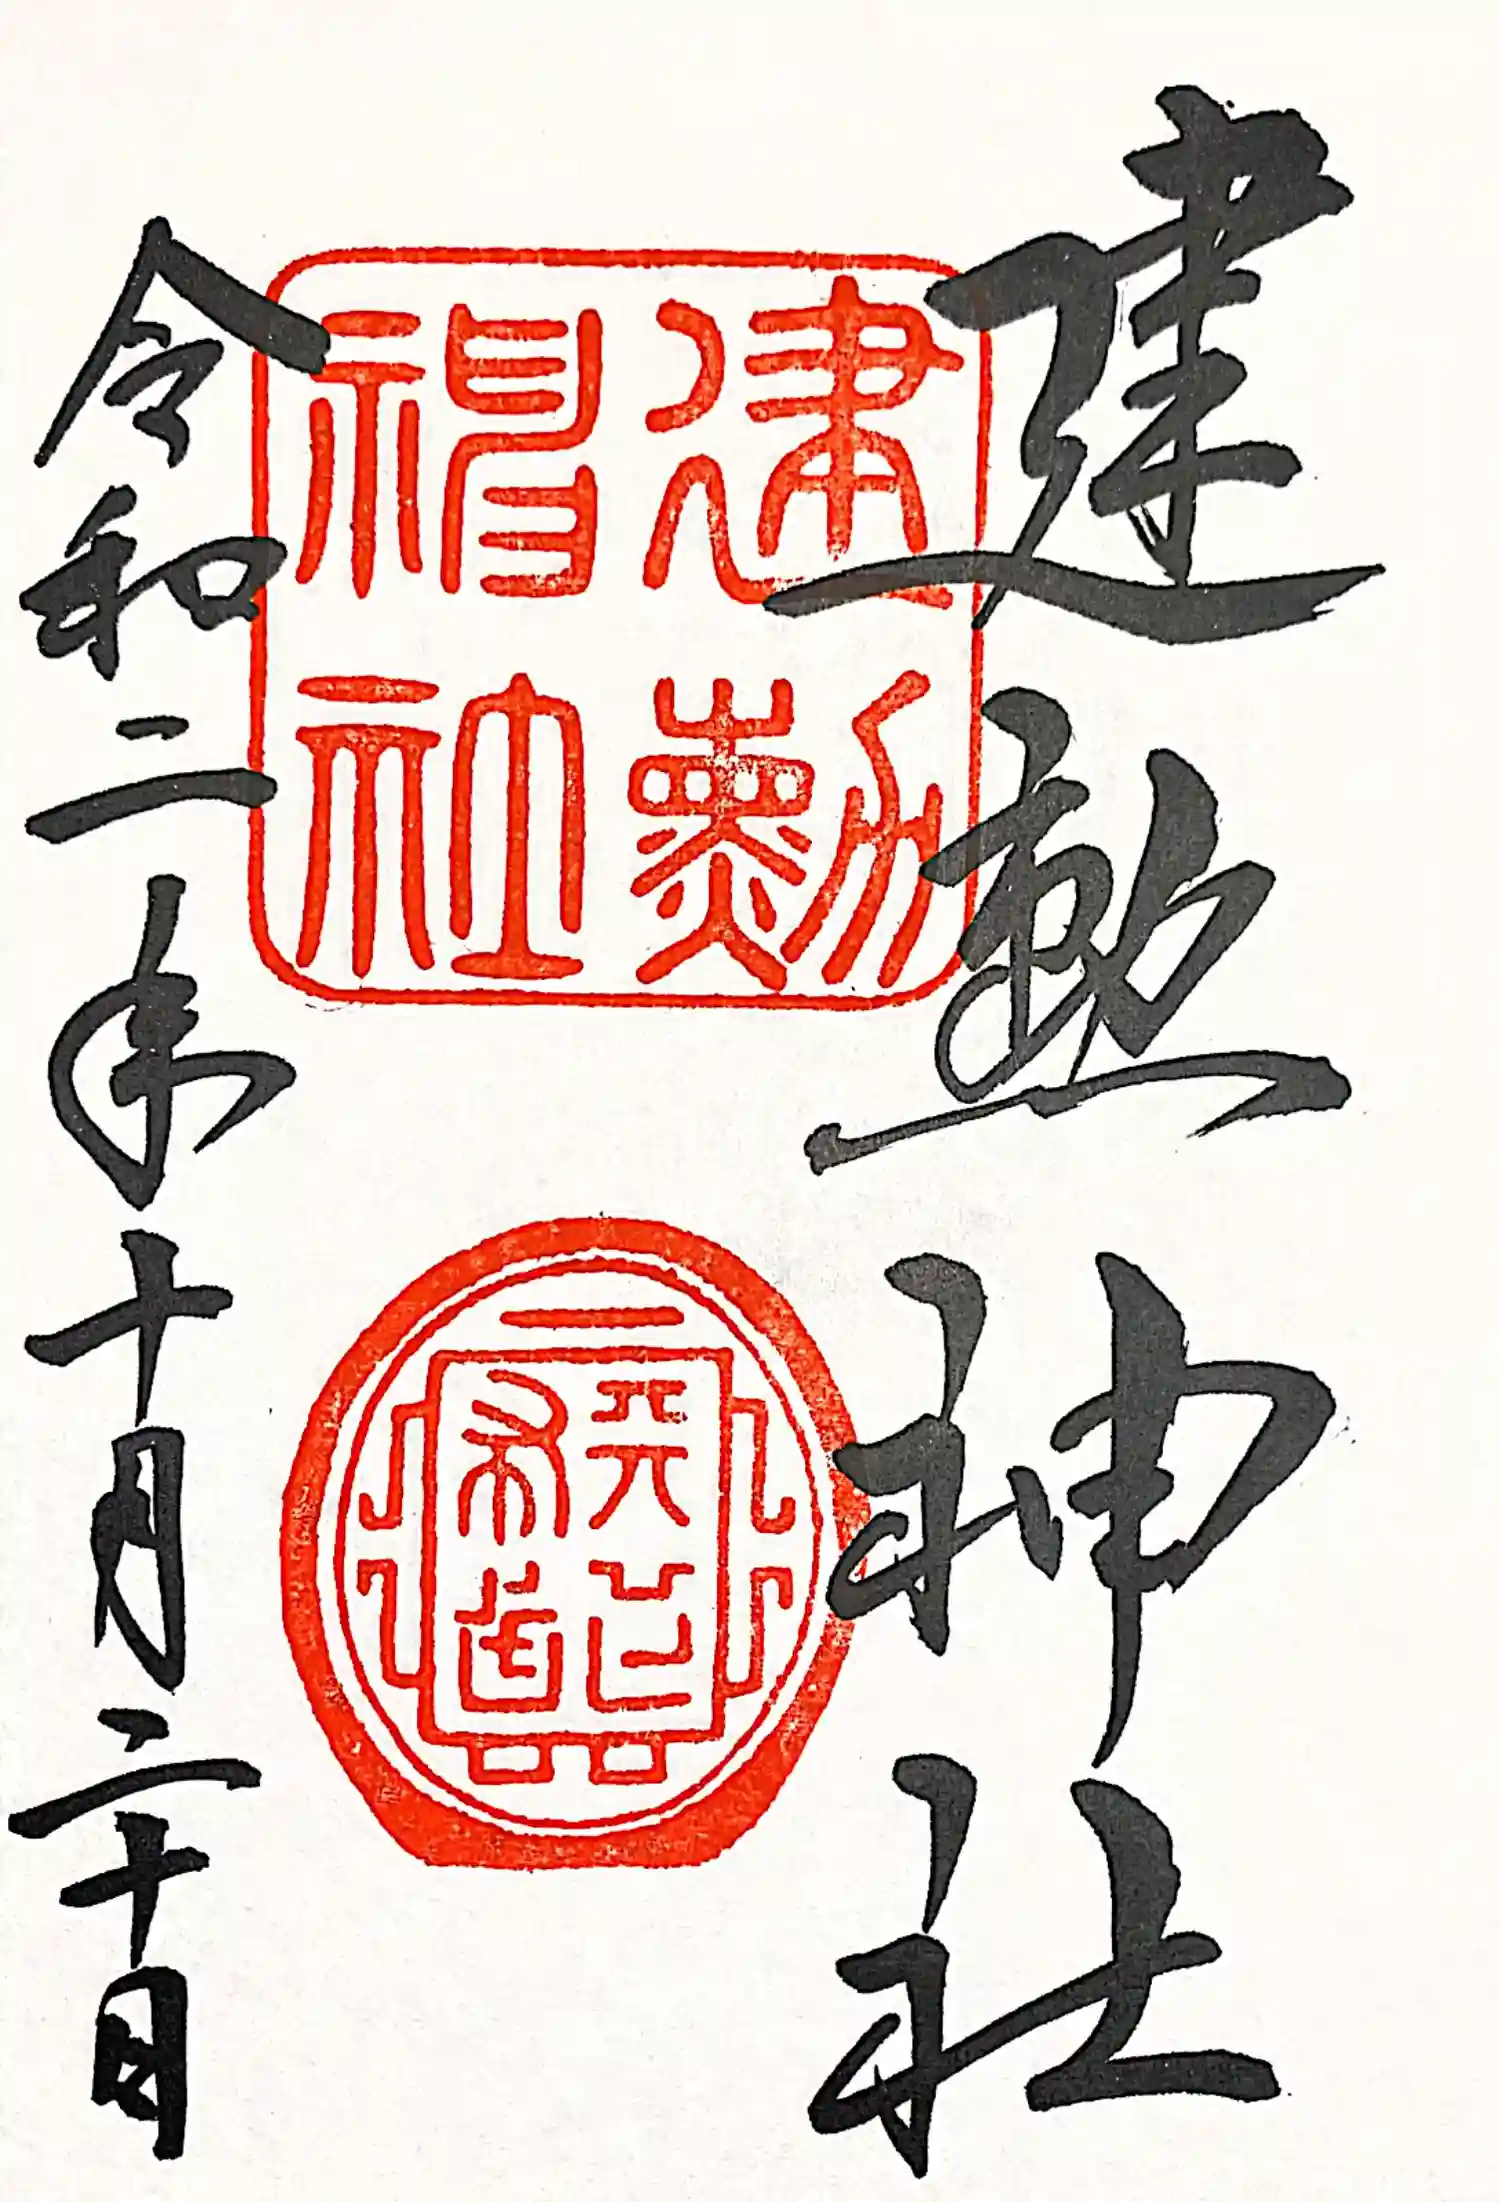 建勲神社
建勲神社
天下布武
令和二年十月二十日